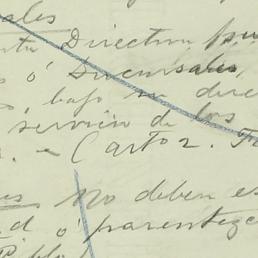 ales
Directiva
s ó Sucursales
bajo su direc
servicio de los
. - Cart 2.
es No deben es
d. ó parentezc